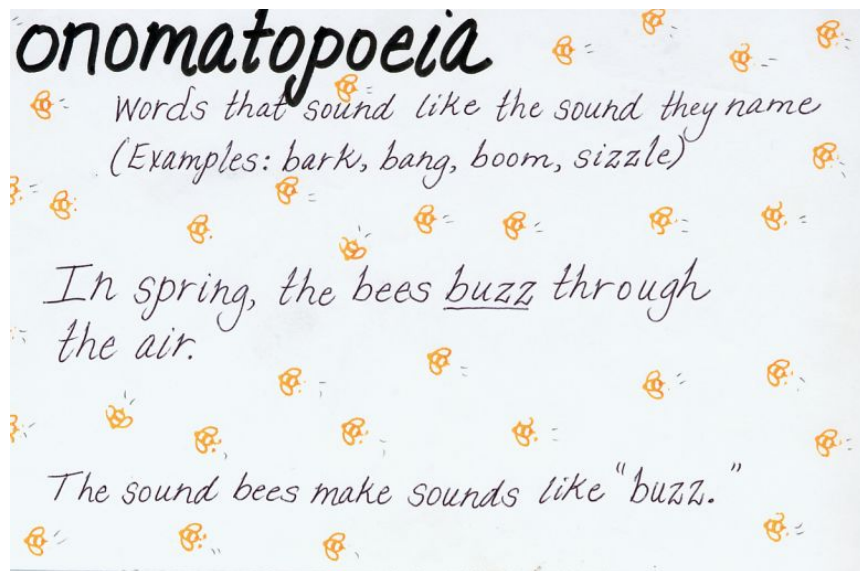 onomatopoeia
Words that sound like the sound they name
(Examples: bark, bang, boom, sizzle)
In spring, the bees buzz through
the air.
The sound bees make sounds like "buzz."